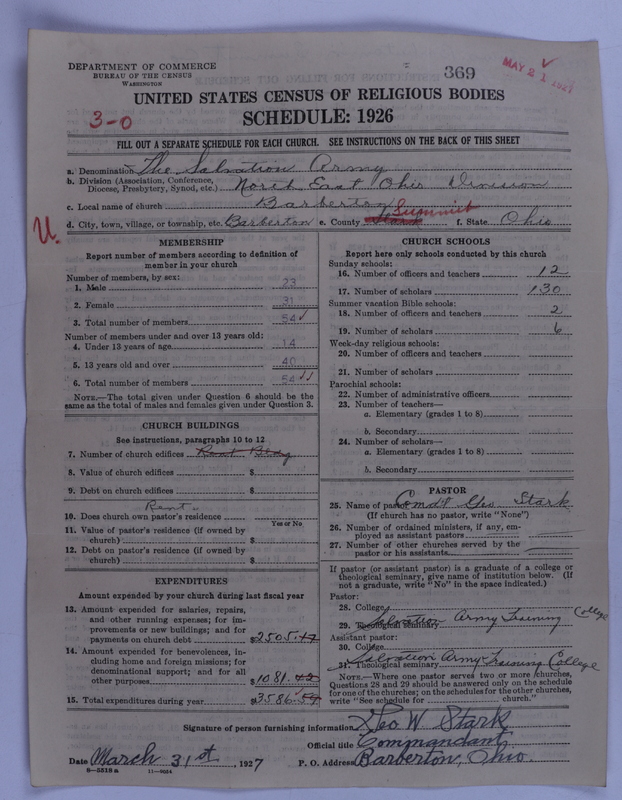 DEPARTMENT OF COMMERCE
BUREAU OF THE CENSUS
WASHINGTON
369
MAY 21 1927
UNITED STATES CENSUS OF RELIGIOUS BODIES
3-0
SCHEDULE: 1926
FILL OUT A SEPARATE SCHEDULE FOR EACH CHURCH. SEE INSTRUCTIONS ON THE BACK OF THIS SHEET
a. Denomination The Salvation Army
b. Division (Association, Conference, Diocese, Presbytery, Synod, etc.) North East Ohio Division
c. Local name of church Barberton
d. City, town, village, or township, etc. Barberton e. County Stark Summit f. State Ohio
U.
MEMBERSHIP
Report number of members according to definition of
member in your church
Number of members, by sex:
1. Male 23
2. Female 31
3. Total number of members 54
Number of members under and over 13 years old:
4. Under 13 years of age 14
5. 13 years old and over 40
6. Total number of members 54
NOTE.—The total given under Question 6 should be the
same as the total of males and females given under Question 3.
CHURCH BUILDINGS
See instructions, paragraphs 10 to 12
7. Number of church edifices Rent Bldg
8. Value of church edifices $
9. Debt on church edifices $
Rent
10. Does church own pastor's residence
Yes or No
11. Value of pastor's residence (if owned by
church) $
12. Debt on pastor's residence (if owned by
church) $
EXPENDITURES
Amount expended by your church during last fiscal year
13. Amount expended for salaries, repairs,
and other running expenses; for im-
provements or new buildings; and for
payments on church debt $2505.47
14. Amount expended for benevolences, in-
cluding home and foreign missions; for
denominational support; and for all
other purposes $1081.42
15. Total expenditures during year $3586.54
CHURCH SCHOOLS
Report here only schools conducted by this church
Sunday schools:
16. Number of officers and teachers 12
17. Number of scholars 130
Summer vacation Bible schools:
18. Number of officers and teachers 2
19. Number of scholars 6
Week-day religious schools:
20. Number of officers and teachers
21. Number of scholars
Parochial schools:
22. Number of administrative officers
23. Number of teachers—
a. Elementary (grades 1 to 8)
b. Secondary
24. Number of scholars—
a. Elementary (grades 1 to 8)
b. Secondary
PASTOR
25. Name of pastor Comdt Geo Stark
(If church has no pastor, write "None")
26. Number of ordained ministers, if any, em-
ployed as assistant pastors
27. Number of other churches served by the
pastor or his assistants
If pastor (or assistant pastor) is a graduate of a college or
theological seminary, give name of institution below. (If
not a graduate, write "No" in the space indicated.)
Pastor:
28. College
29. Theological seminary Salvation Army Training College
Assistant pastor:
30. College
31. Theological seminary Salvation Army Training College
NOTE.—Where one pastor serves two or more churches,
Questions 28 and 29 should be answered only on the schedule
for one of the churches; on the schedules for the other churches,
write "See schedule for church."
Signature of person furnishing information Geo W Stark
Official title Commandant
Date March 31st, 1927 P. O. Address Barberton, Ohio.
8—5518 a 11—9054